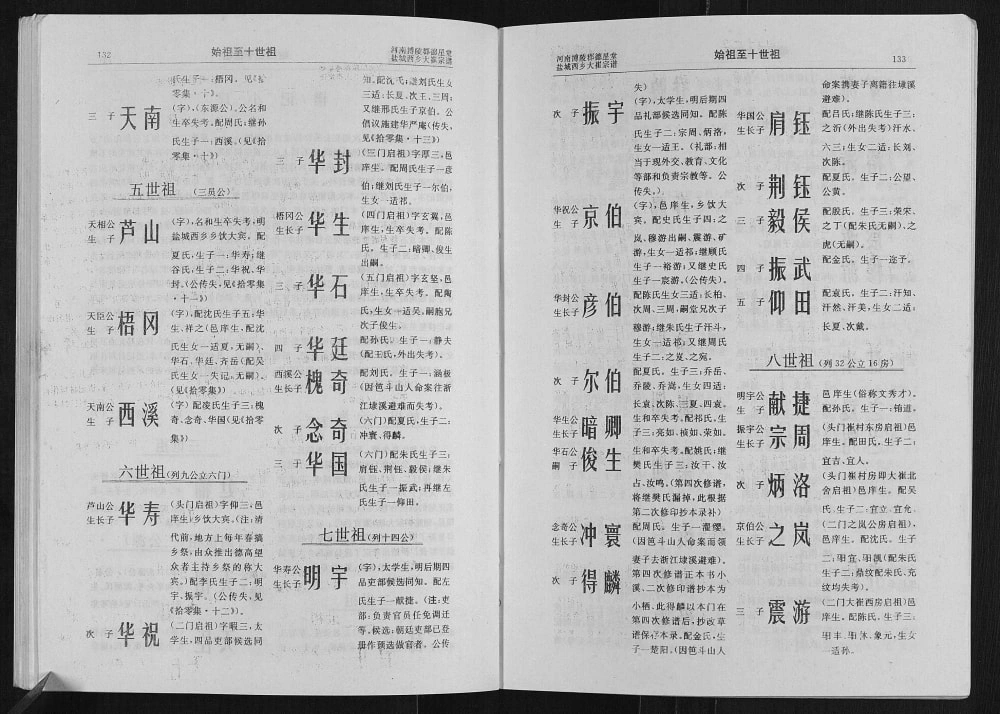 132
始祖至十世祖
河南博陵郡德星堂
盐城西乡大崔宗谱
氏生子一：梧冈。见《拾
零集·十》。
三　子　天南
(字)，(东源公)。公名和
生卒失考。配周氏；继孙
氏生子一：西溪。(见《拾
零集·十》)
五世祖　(三员公)
天相公
生　子　芦山
(字)，名和生卒失考，明
盐城西乡乡饮大宾。配
夏氏，生子一：华寿；继
谷氏，生子二：华祝、华
封。(公传失，见《拾零集
·十一》)
天臣公
生　子　梧冈
(字)，配沈氏生子五：华
生，祥之(邑庠生，配沈
氏生女一适夏，无嗣)、
华石、华廷、齐岳(配吴
氏生女一失记。无嗣)。
(见《拾零集》)
天南公
生　子　西溪
(字)配凌氏生子三：槐
奇、念奇、华国(见《拾零
集》)
六世祖(列九公立六门)
芦山公
生长子　华寿
(头门启祖)字仰三，邑
庠生)乡饮大宾。(注：清
代前，地方上每年春搞
乡祭，由众推出德高望
众者主持乡祭的称大
宾。)配李氏生子二：明
宇、振宇。(公传失，见
《拾零集·十二》)。
次　子　华祝
(二门启祖)字暇三，太
学生，四品吏部候选同
知。配沈氏；继刘氏生女
三适：长夏、次王、三周；
又继邢氏生子京伯。公
倡议施建华严庵(传失，
见《拾零集·十三》)
三　子　华封
(三门启祖)字厚三，邑
庠生。配周氏生子一彦
伯；继刘氏生子一尔伯，
生女一适祁
梧冈公
生长子　华生
(四门启祖)字玄冀，邑
庠生，生卒失考。配陈
氏。生子二：暗卿、俊生
出嗣。
三　子　华石
(五门启祖)字玄坚，邑
庠生，生卒失考。配陶
氏；生女一适吴，嗣胞兄
次子俊生。
四　子　华廷
配孙氏。生子一：静夫
(配王氏，外出失考)。
西溪公
生长子　槐奇
配刘氏。生子一：涵极
(因笆斗山人命案往浙
江埭溪避难而失考)。
次　子　念奇
(六门)配夏氏，生子二：
冲寰、得麟。
三　子　华国
(六门)配朱氏生子三：
肩钰、荆钰、毅侯；继朱
氏生子一振武；再继左
氏生子一仰田。
七世祖(列十四公)
华寿公
生长子　明宇
(字)，太学生，明后期四
品吏部候选同知。配左
氏生子一献捷。(注：吏
部：负责官员任免调迁
等。候选：朝廷吏部已登
册作预选做官者。公传
河南博陵郡德星堂
盐城西乡大崔宗谱
始祖至十世祖
133
失)
次　子　振宇
(字)，太学生，明后期四
品礼部候选同知。配陈
氏生子二：宗周、炳洛，
生女一适王。(礼部：相
当于现外交、教育、文化
等部和负责宗教等。公
传失。)
华祝公
生　子　京伯
(字)，邑庠生，乡饮大
宾。配史氏生子四：之
岚、穆游出嗣、震游、矿
游，生女一适祁；继顾氏
生子一裕游；又继史氏
生子一宸游。(公传失)。
华封公
生长子　彦伯
配陈氏生女三适：长柏、
次周、三周，嗣堂兄次子
穆游；继朱氏生子汗斗，
生女一适祁；又继周氏
生子二：之岌、之宛。
次　子　尔伯
配夏氏。生子三：乔岳、
乔陵、乔嵩，生女四适：
长袁、次陈、三夏、四袁。
华生公
生长子　暗卿
生和卒失考。配祁氏，生
子三：亮如、桢如、荣如。
华石公
嗣　子　俊生
生和卒失考。配姚氏；继
樊氏生子三：汝干、汝
占、汝鸣。(第四次修谱，
将继樊氏漏掉，此根据
第二次修印抄本录补)
念奇公
生长子　冲寰
配周氏。生子一灌缨。
(因笆斗山人命案而领
妻子去浙江埭溪避难)。
次　子　得麟
第四次修谱正本书小
溪、二次修印谱抄本为
小栖，此得麟以本门在
第四次修谱后，抄改草
谱保存本录。配金氏，生
子一楚阳。(因笆斗山人
命案携妻子离籍往埭溪
避难)。
华国公
生长子　肩钰
配吕氏；继陈氏生子三：
之沂(外出失考)汗水、
六三；生女二适：长刘、
次陈。
次　子　荆钰
配夏氏。生子二：公望、
公黄。
三　子　毅侯
配殷氏。生子三：荣宋、
之丁(配朱氏无嗣)、之
虎(无嗣)。
四　子　振武
配金氏。生子一迩予。
五　子　仰田
配袁氏。生子二：汗知、
汗然、汗美，生女二适：
长夏、次戴。
八世祖(列32公立16房)
明宇公
生　子　献捷
邑庠生(俗称文秀才)。
配孙氏。生子一：楢道。
振宇公
生长子　宗周
(头门崔村东房启祖)邑
庠生。配田氏。生子二：
宜吉、宜人。
次　子　炳洛
(头门崔村房即大崔北
舍启祖)邑庠生。配吴
氏。生子二：宜立、宜允。
京伯公
生长子　之岚
(二门之岚公房启祖)。
邑庠生。配陈氏。生子
二：玥宣、玥觐(配朱氏
生子二：鼎纹配朱氏、充
纹均失考)。
三　子　震游
(二门大崔西房启祖)邑
庠生。配陈氏。生子三：
玥丰、玥沐、象元，生女
一适孙。